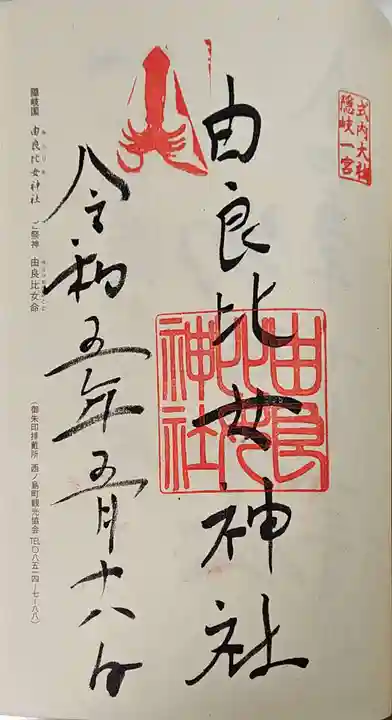 式内大社
隠岐一宮
由良比女神社
由良比女神社
令和五年五月十八日
隠岐国 由良比女神社 ご祭神 由良比女命
(御朱印拝戴所 西ノ島町観光協会 TEL〇八五一四ー七ー八八)